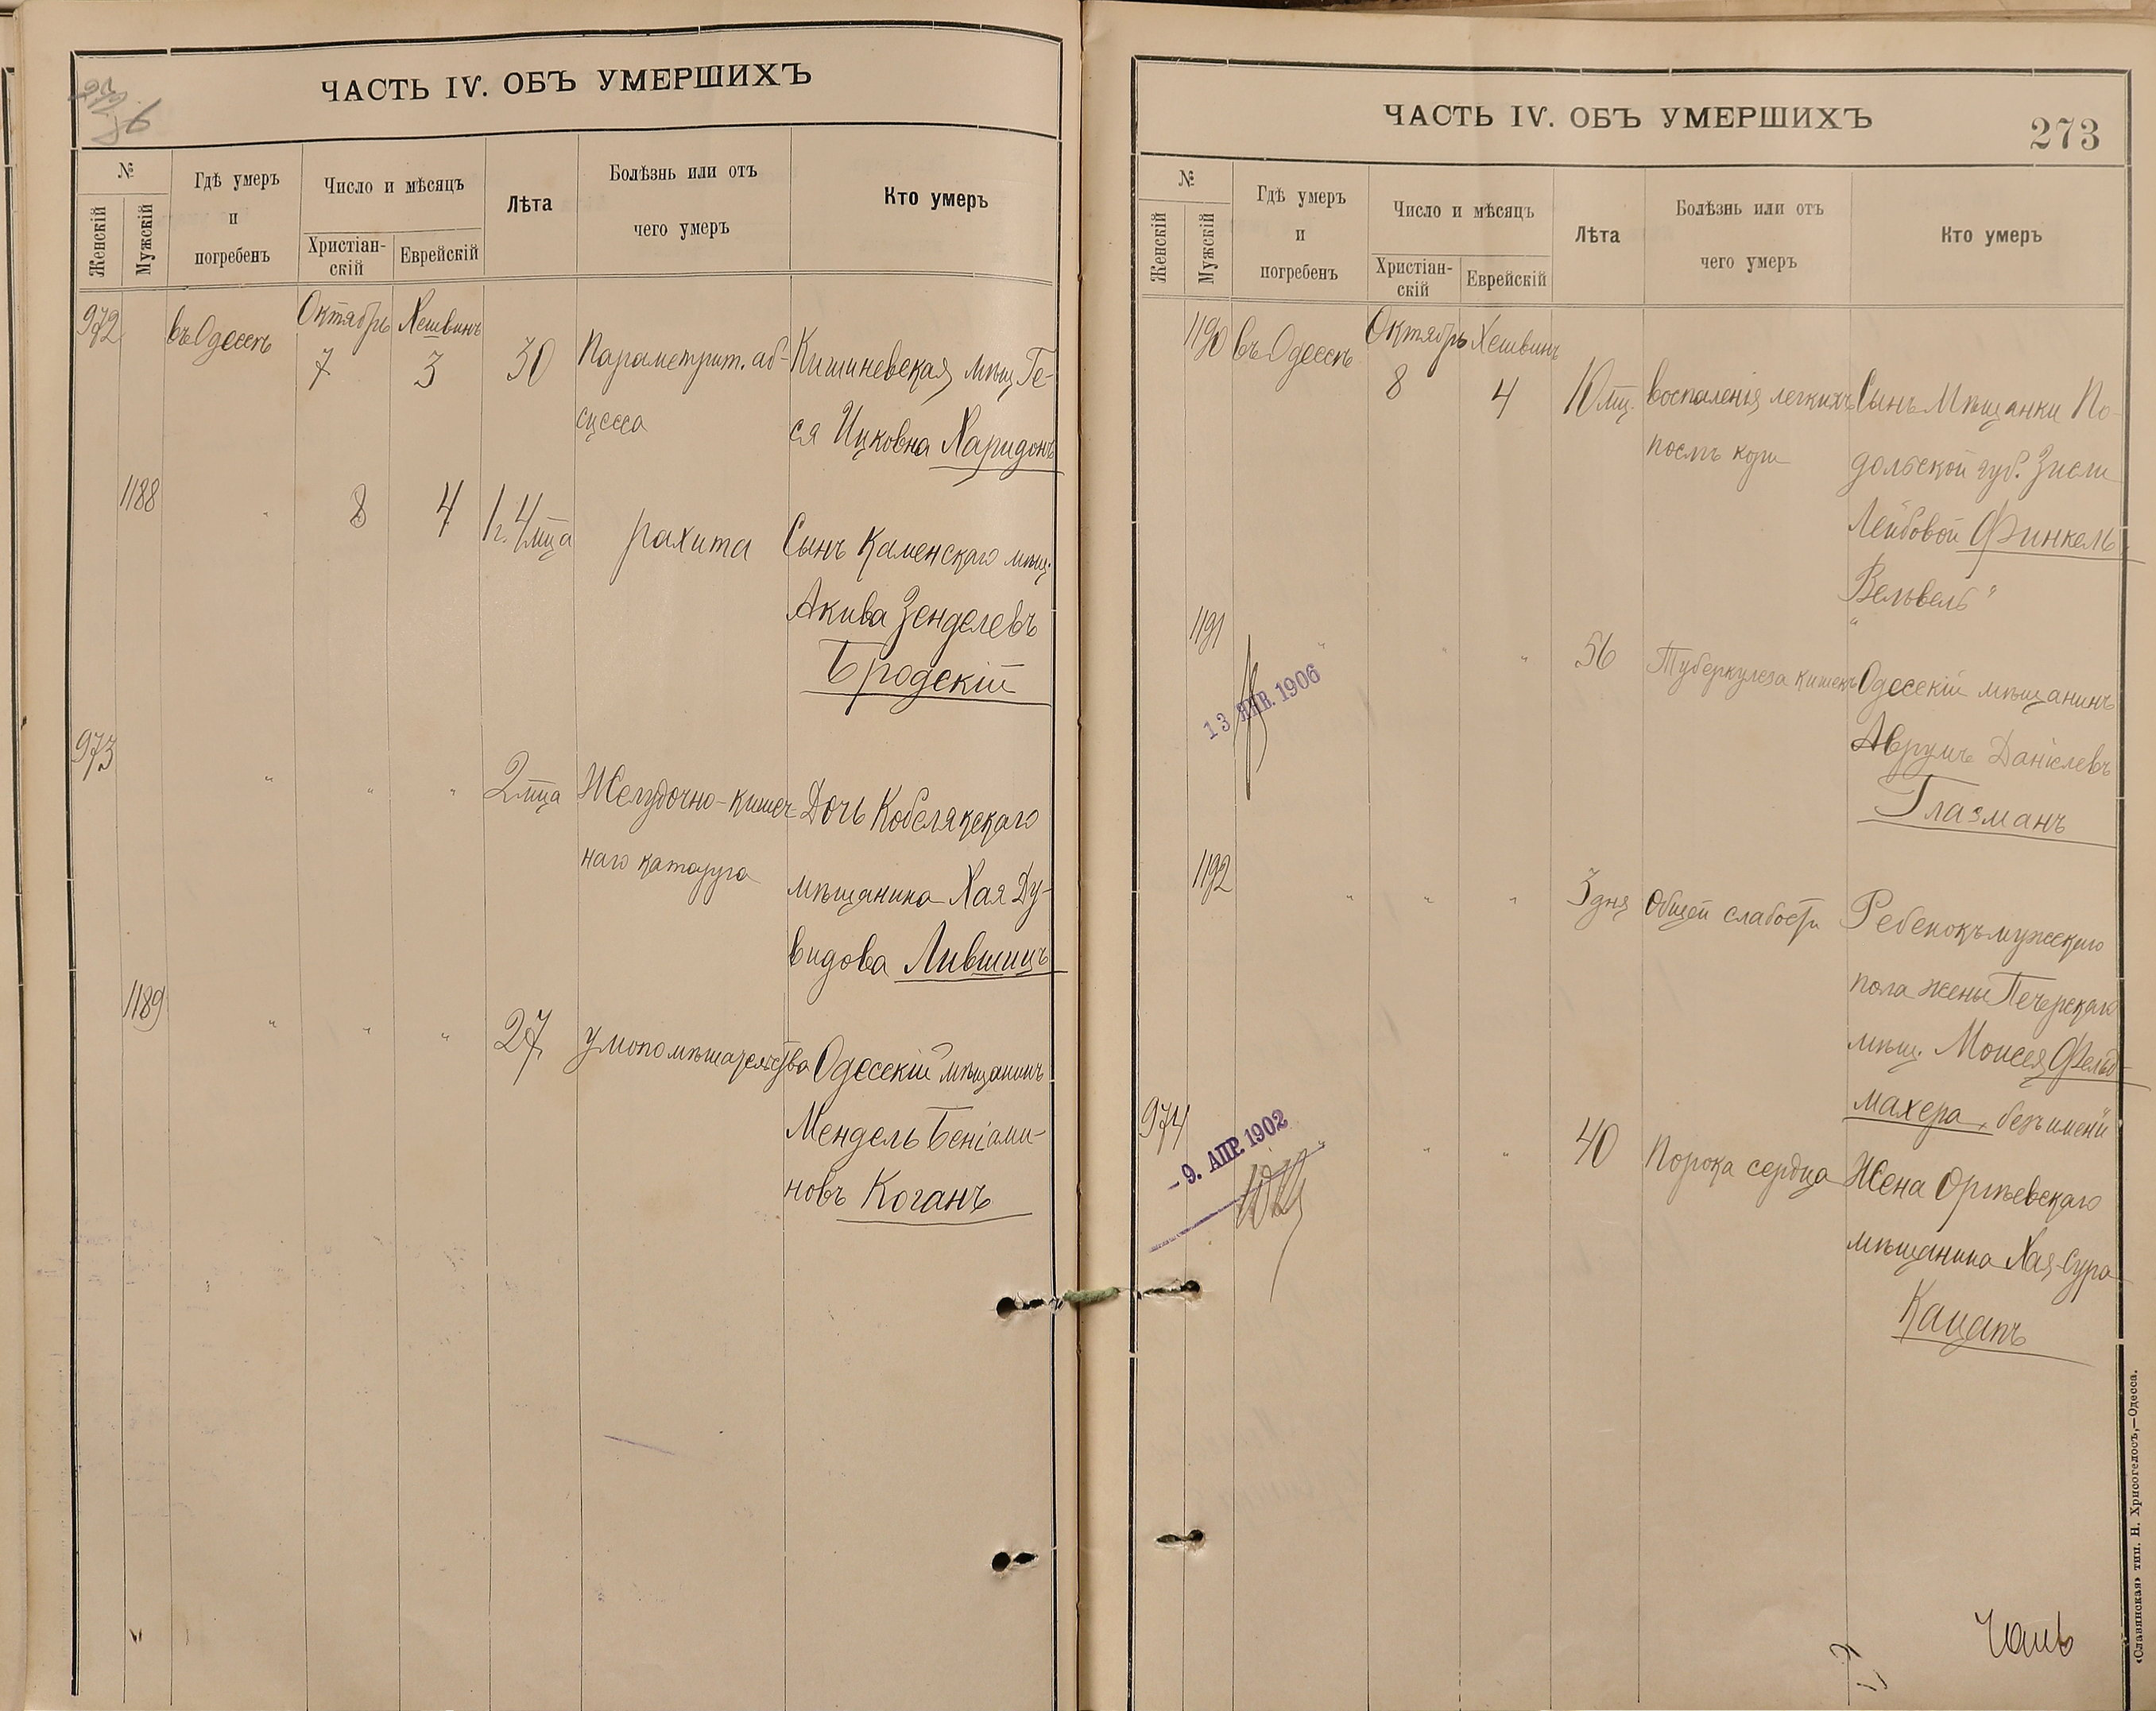 ЧАСТЬ IV. ОБЪ УМЕРШИХЪ
№
Женскій
Мужскій
Гдѣ умеръ
и
погребенъ
Число и мѣсяцъ
Христіан-
скій
Еврейскій
Лѣта
Болѣзнь или отъ
чего умеръ
Кто умеръ
972 въ Одессѣ Октябрь 7 Хешвинъ 3 30 Параметрит. аб- Кишиневская мѣщ. Ге-
сцесса ся Ицковна Харидонъ
1188 " 8 4 1 г. 4 мца рахита Сынъ Каменскаго мѣщ.
Акива Зенделевъ
Бродскій
973 " " " 2 мца Желудочно-кишеч- Дочь Кобелякскаго
наго катарра мѣщанина Хая Ду-
видова Лившицъ
1189 " " " 27 умопомѣшательства Одесскій мѣщанинъ
Мендель Беніами-
новъ Коганъ
ЧАСТЬ IV. ОБЪ УМЕРШИХЪ
273
№
Женскій
Мужскій
Гдѣ умеръ
и
погребенъ
Число и мѣсяцъ
Христіан-
скій
Еврейскій
Лѣта
Болѣзнь или отъ
чего умеръ
Кто умеръ
1190 въ Одессѣ Октябрь 8 Хешвинъ 4 10 мц. воспаленія легкихъ Сынъ Мѣщанки По-
послѣ кори дольской губ. Зисли
Лейбовой Финкель
"Вельвель"
1191 " " " 56 Туберкулеза кишекъ Одесскій мѣщанинъ
13 ЯНВ. 1906
Аврумъ Даніелевъ
Глазманъ
1192 " " " 3 дня Общей слабости Ребенокъ мужскаго
пола жены Печерскаго
мѣщ. Моисея Фельд-
махера, безъ имени"
974 " " " 40 Порока сердца Жена Оргѣевскаго
- 9. АПР. 1902
мѣщанина Хая-Сура
Кацапъ
«Славянская» тип. Н. Хрисогелосъ,—Одесса.